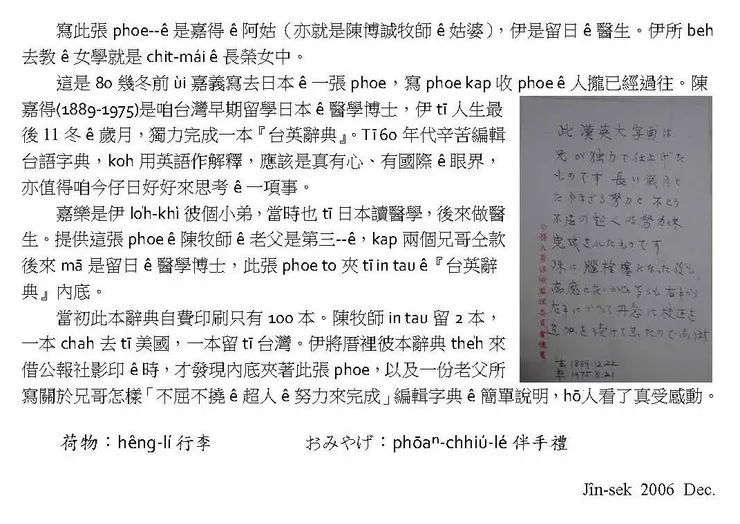 寫此張 phoe--ê 是嘉得 ê 阿姑（亦就是陳博誠牧師 ê 姑婆），伊是留日 ê 醫生。伊所 beh
去教 ê 女學就是 chit-mái ê 長榮女中。
這是 80 幾冬前 ùi 嘉義寫去日本 ê 一張 phoe，寫 phoe kap 收 phoe ê 人攏已經過往。陳
嘉得(1889-1975)是咱台灣早期留學日本 ê 醫學博士，伊 tī 人生最
後 11 冬 ê 歲月，獨力完成一本『台英辭典』。Tī 60 年代辛苦編輯
台語字典，koh 用英語作解釋，應該是真有心、有國際 ê 眼界，
亦值得咱今仔日好好來思考 ê 一項事。
嘉樂是伊 lo̍h-khì 彼個小弟，當時也 tī 日本讀醫學，後來做醫
生。提供這張 phoe ê 陳牧師 ê 老父是第三--ê，kap 兩個兄哥仝款
後來 mā 是留日 ê 醫學博士，此張 phoe to 夾 tī in tau ê『台英辭
典』內底。
當初此本辭典自費印刷只有 100 本。陳牧師 in tau 留 2 本，
一本 chah 去 tī 美國，一本留 tī 台灣。伊將厝裡彼本辭典 theh 來
借公報社影印 ê 時，才發現內底夾著此張 phoe，以及一份老父所
寫關於兄哥怎樣「不屈不撓 ê 超人 ê 努力來完成」編輯字典 ê 簡單說明，hō͘人看了真受感動。
此漢英大字典は
兄が独力で仕上げた
ものです 長い歳月と
たゆまざる努力と 不とう
不屈の超人的努力
完成されたものです
殊に脳栓塞になった後も
右手から
左手にかへて丹念に校正を
追加を続けて
生 1889.12.22
卒 1975.8.21
荷物：hêng-lí 行李
おみやげ：phōaⁿ-chhiú-lé 伴手禮
Jîn-sek 2006 Dec.